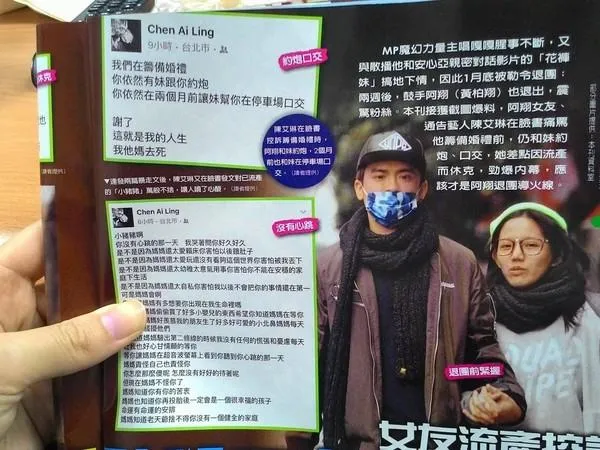 休克
Chen Ai Ling
9小時·台北市·
我們在籌備婚禮
你依然有妹跟你約炮
你依然在兩個月前讓妹幫你在停車場口交
謝了
這就是我的人生
我他媽去死
約炮口交
陳艾琳在臉書
控訴籌備婚禮時,
阿翔和妹約炮,2個月
前也和妹在停車場口
交。(讀者提供)
▼連發兩篇暴走文後,陳艾琳又在臉書發文對已流產
的「小豬豬」萬般不捨,讓人讀了心酸。(讀者提供)
Chen Ai Ling
8小時·台北市·
沒有心跳
小豬豬啊
你沒有心跳的那一天 我哭著問你好久好久
是不是因為媽媽還太愛賴床你害怕以後餓肚子
是不是因為媽媽還太愛玩還沒有看夠這個世界你害怕被我丟下
是不是因為媽媽還太幼稚太意氣用事你害怕你不能在安穩的家
庭下生活
是不是因為媽媽還太自私你害怕我以後不會把你的事情擺在第一
可是媽媽會啊
媽媽有多想要你出現在我生命裡嗎
媽媽偷偷買了好多小嬰兒的東西希望你知道媽媽在等你
媽媽好羨慕我的朋友生了好多好可愛的小北鼻媽媽每天
擾他們
知道媽媽驗出第二條線的時候我沒有任何的慌張和憂慮每天
我也好心甘情願的等你
等你讓媽媽在超音波螢幕上看到你聽到你心跳的那一天
媽媽責怪自己也責怪你
你怎麼那麼傻呢 怎麼沒有好好的待著呢
但現在媽媽不怪你了
媽媽知道你有你的苦衷
媽媽也知道你再投胎後一定會是一個很幸福的孩子
命運有命運的安排
媽媽知道老天爺捨不得你沒有一個健全的家庭
MP魔幻力量主唱嘎嘎腥事不斷,又
與散播他和安心亞親密對話影片的「花褲
妹」搞地下情,因此1月底被勒令退團;
兩週後,鼓手阿翔(黃柏翔)也退出,震
驚粉絲。本刊接獲截圖爆料,阿翔女友、
通告藝人陳艾琳在臉書痛罵
他籌備婚禮前,仍和妹約
炮、口交,她差點因流產
而休克,勁爆內幕,應
該才是阿翔退團導火線。
部分圖片提供:本刊資料室
退團前緊握
女友流產控訴